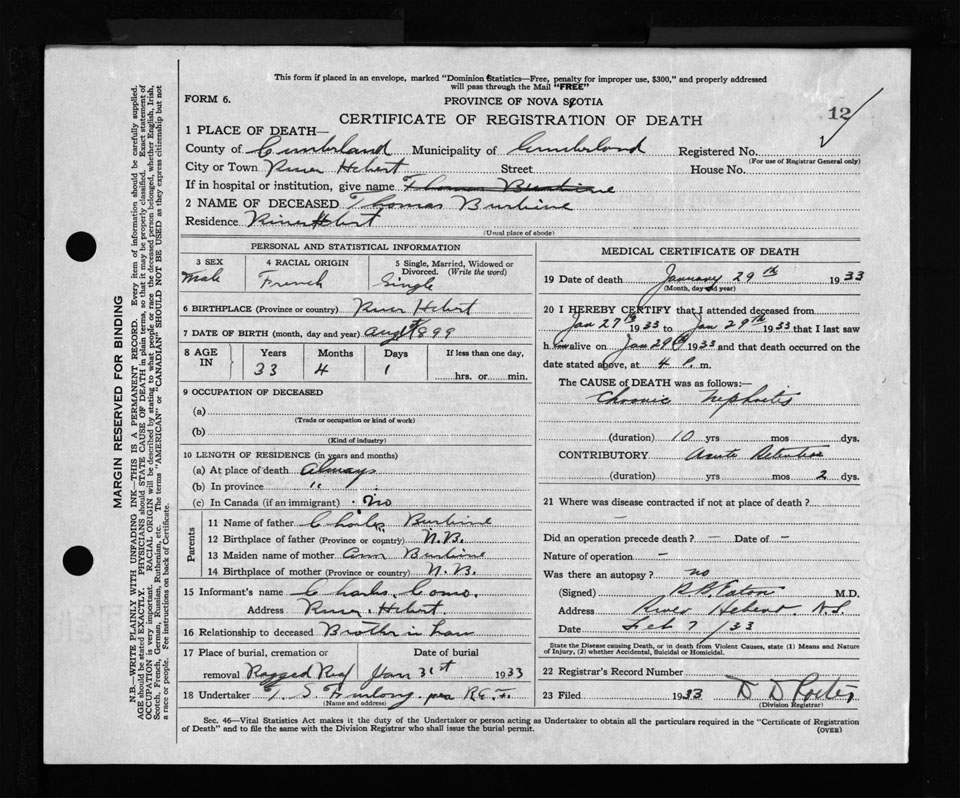 This form if placed in an envelope, marked "Dominion Statistics—Free, penalty for improper use, $300," and properly addressed
will pass through the Mail "FREE"
FORM 6.
PROVINCE OF NOVA SCOTIA
12
CERTIFICATE OF REGISTRATION OF DEATH
1 PLACE OF DEATH—
County of Cumberland Municipality of Cumberland Registered No.
(For use of Registrar General only)
City or Town River Hebert Street House No.
If in hospital or institution, give name Thomas Burbine
2 NAME OF DECEASED Thomas Burbine
Residence River Hebert
(Usual place of abode)
PERSONAL AND STATISTICAL INFORMATION
3 SEX 4 RACIAL ORIGIN 5 Single, Married, Widowed or
Divorced. (Write the word)
Male French Single
6 BIRTHPLACE (Province or country) River Hebert
7 DATE OF BIRTH (month, day and year) Aug 1899
8 AGE IN Years Months Days If less than one day,
33 4 1 hrs. or min.
9 OCCUPATION OF DECEASED
(a)
(Trade or occupation or kind of work)
(b)
(Kind of industry)
10 LENGTH OF RESIDENCE (in years and months)
(a) At place of death Always
(b) In province " "
(c) In Canada (if an immigrant) no
Parents
11 Name of father Charles Burbine
12 Birthplace of father (Province or country) N.B.
13 Maiden name of mother Ann Burbine
14 Birthplace of mother (Province or country) N.B.
15 Informant's name Charles Como.
Address River Hebert.
16 Relationship to deceased Brother in Law
17 Place of burial, cremation or Date of burial
removal Ragged Reef Jan 31st 1933
18 Undertaker T. S. Furlong per R.E.F.
(Name and address)
MEDICAL CERTIFICATE OF DEATH
19 Date of death January 29th 1933
(Month, day and year)
20 I HEREBY CERTIFY that I attended deceased from
Jan 27th 1933 to Jan 29th 1933 that I last saw
him alive on Jan 29th 1933 and that death occurred on the
date stated above, at 4 P. m.
The CAUSE of DEATH was as follows:—
Chronic Nephritis
(duration) 10 yrs mos dys.
CONTRIBUTORY Acute
(duration) yrs mos 2 dys.
21 Where was disease contracted if not at place of death?
–
Did an operation precede death? – Date of –
Nature of operation –
Was there an autopsy? no
(Signed) Eaton M.D.
Address River Hebert. N.S.
Date Feb 7/33
State the Disease causing Death, or in death from Violent Causes, state (1) Means and
Nature of Injury, (2) whether Accidental, Suicidal or Homicidal.
22 Registrar's Record Number
23 Filed 1933 D D Porter
(Division Registrar)
Sec. 46—Vital Statistics Act makes it the duty of the Undertaker or person acting as Undertaker to obtain all the particulars required in the "Certificate of Registration
of Death" and to file the same with the Division Registrar who shall issue the burial permit.
(OVER)
MARGIN RESERVED FOR BINDING
N.B.—WRITE PLAINLY WITH UNFADING INK—THIS IS A PERMANENT RECORD. Every item of information should be carefully supplied.
AGE should be stated EXACTLY. PHYSICIANS should STATE CAUSE OF DEATH in plain terms, so that it may be properly classified. Exact statement of
OCCUPATION is very important. RACIAL ORIGIN will be described by stating to what people or race the deceased person belonged, whether English, Irish,
Scotch, French, German, Russian, Ruthenian, etc. The terms "AMERICAN" or "CANADIAN" SHOULD NOT BE USED as they express citizenship but not
a race or people. See instructions on back of Certificate.